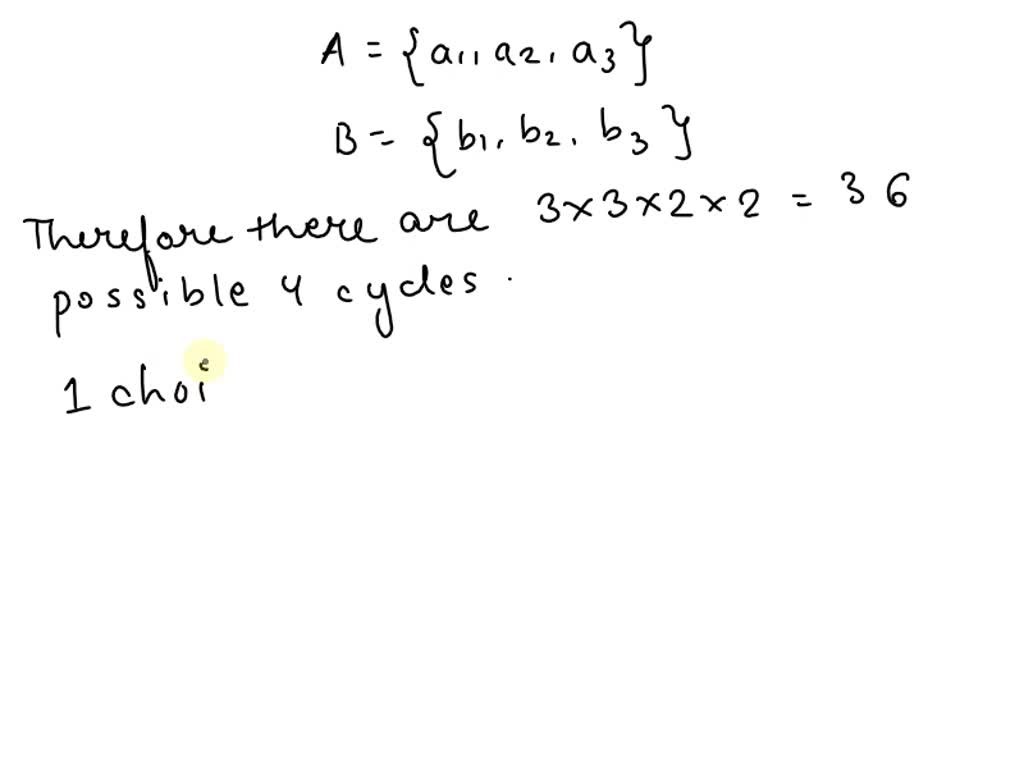 A = {a1, a2, a3}
B = {b1, b2, b3}
Therefore there are 3×3×2×2 = 36
possible 4 cycles.
1 choi